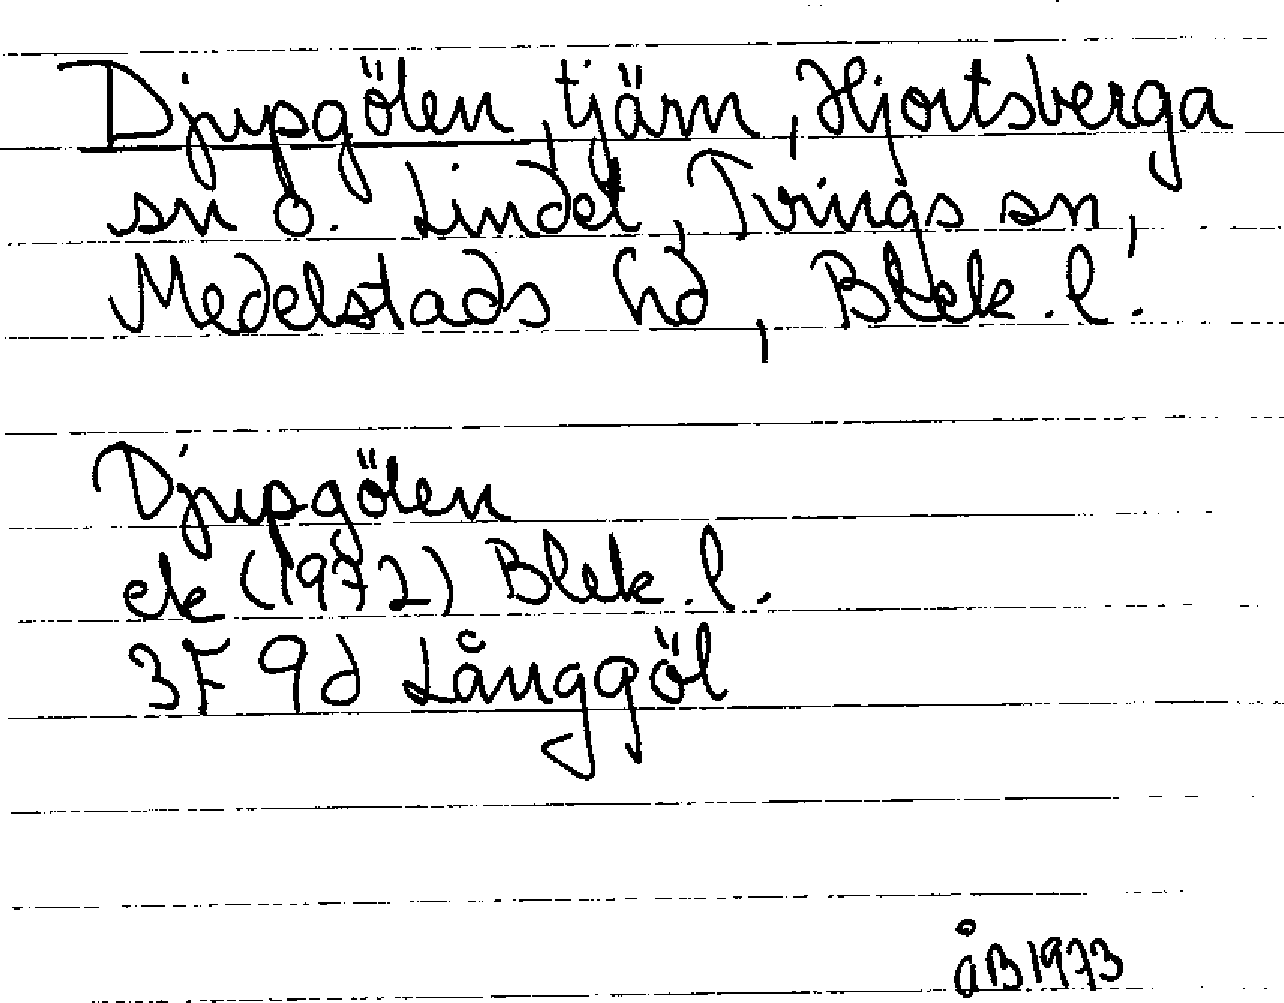 Djupgölen, tjärn, Hjortsberga
sn o. Lindet, Tvings sn,
Medelstads hd, Blek. l.
Djupgölen
ek (1972) Blek. l.
3F 9d Långgöl
åB 1973